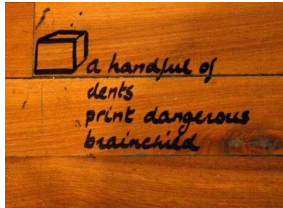 a handful of
dents
print dangerous
brainchild